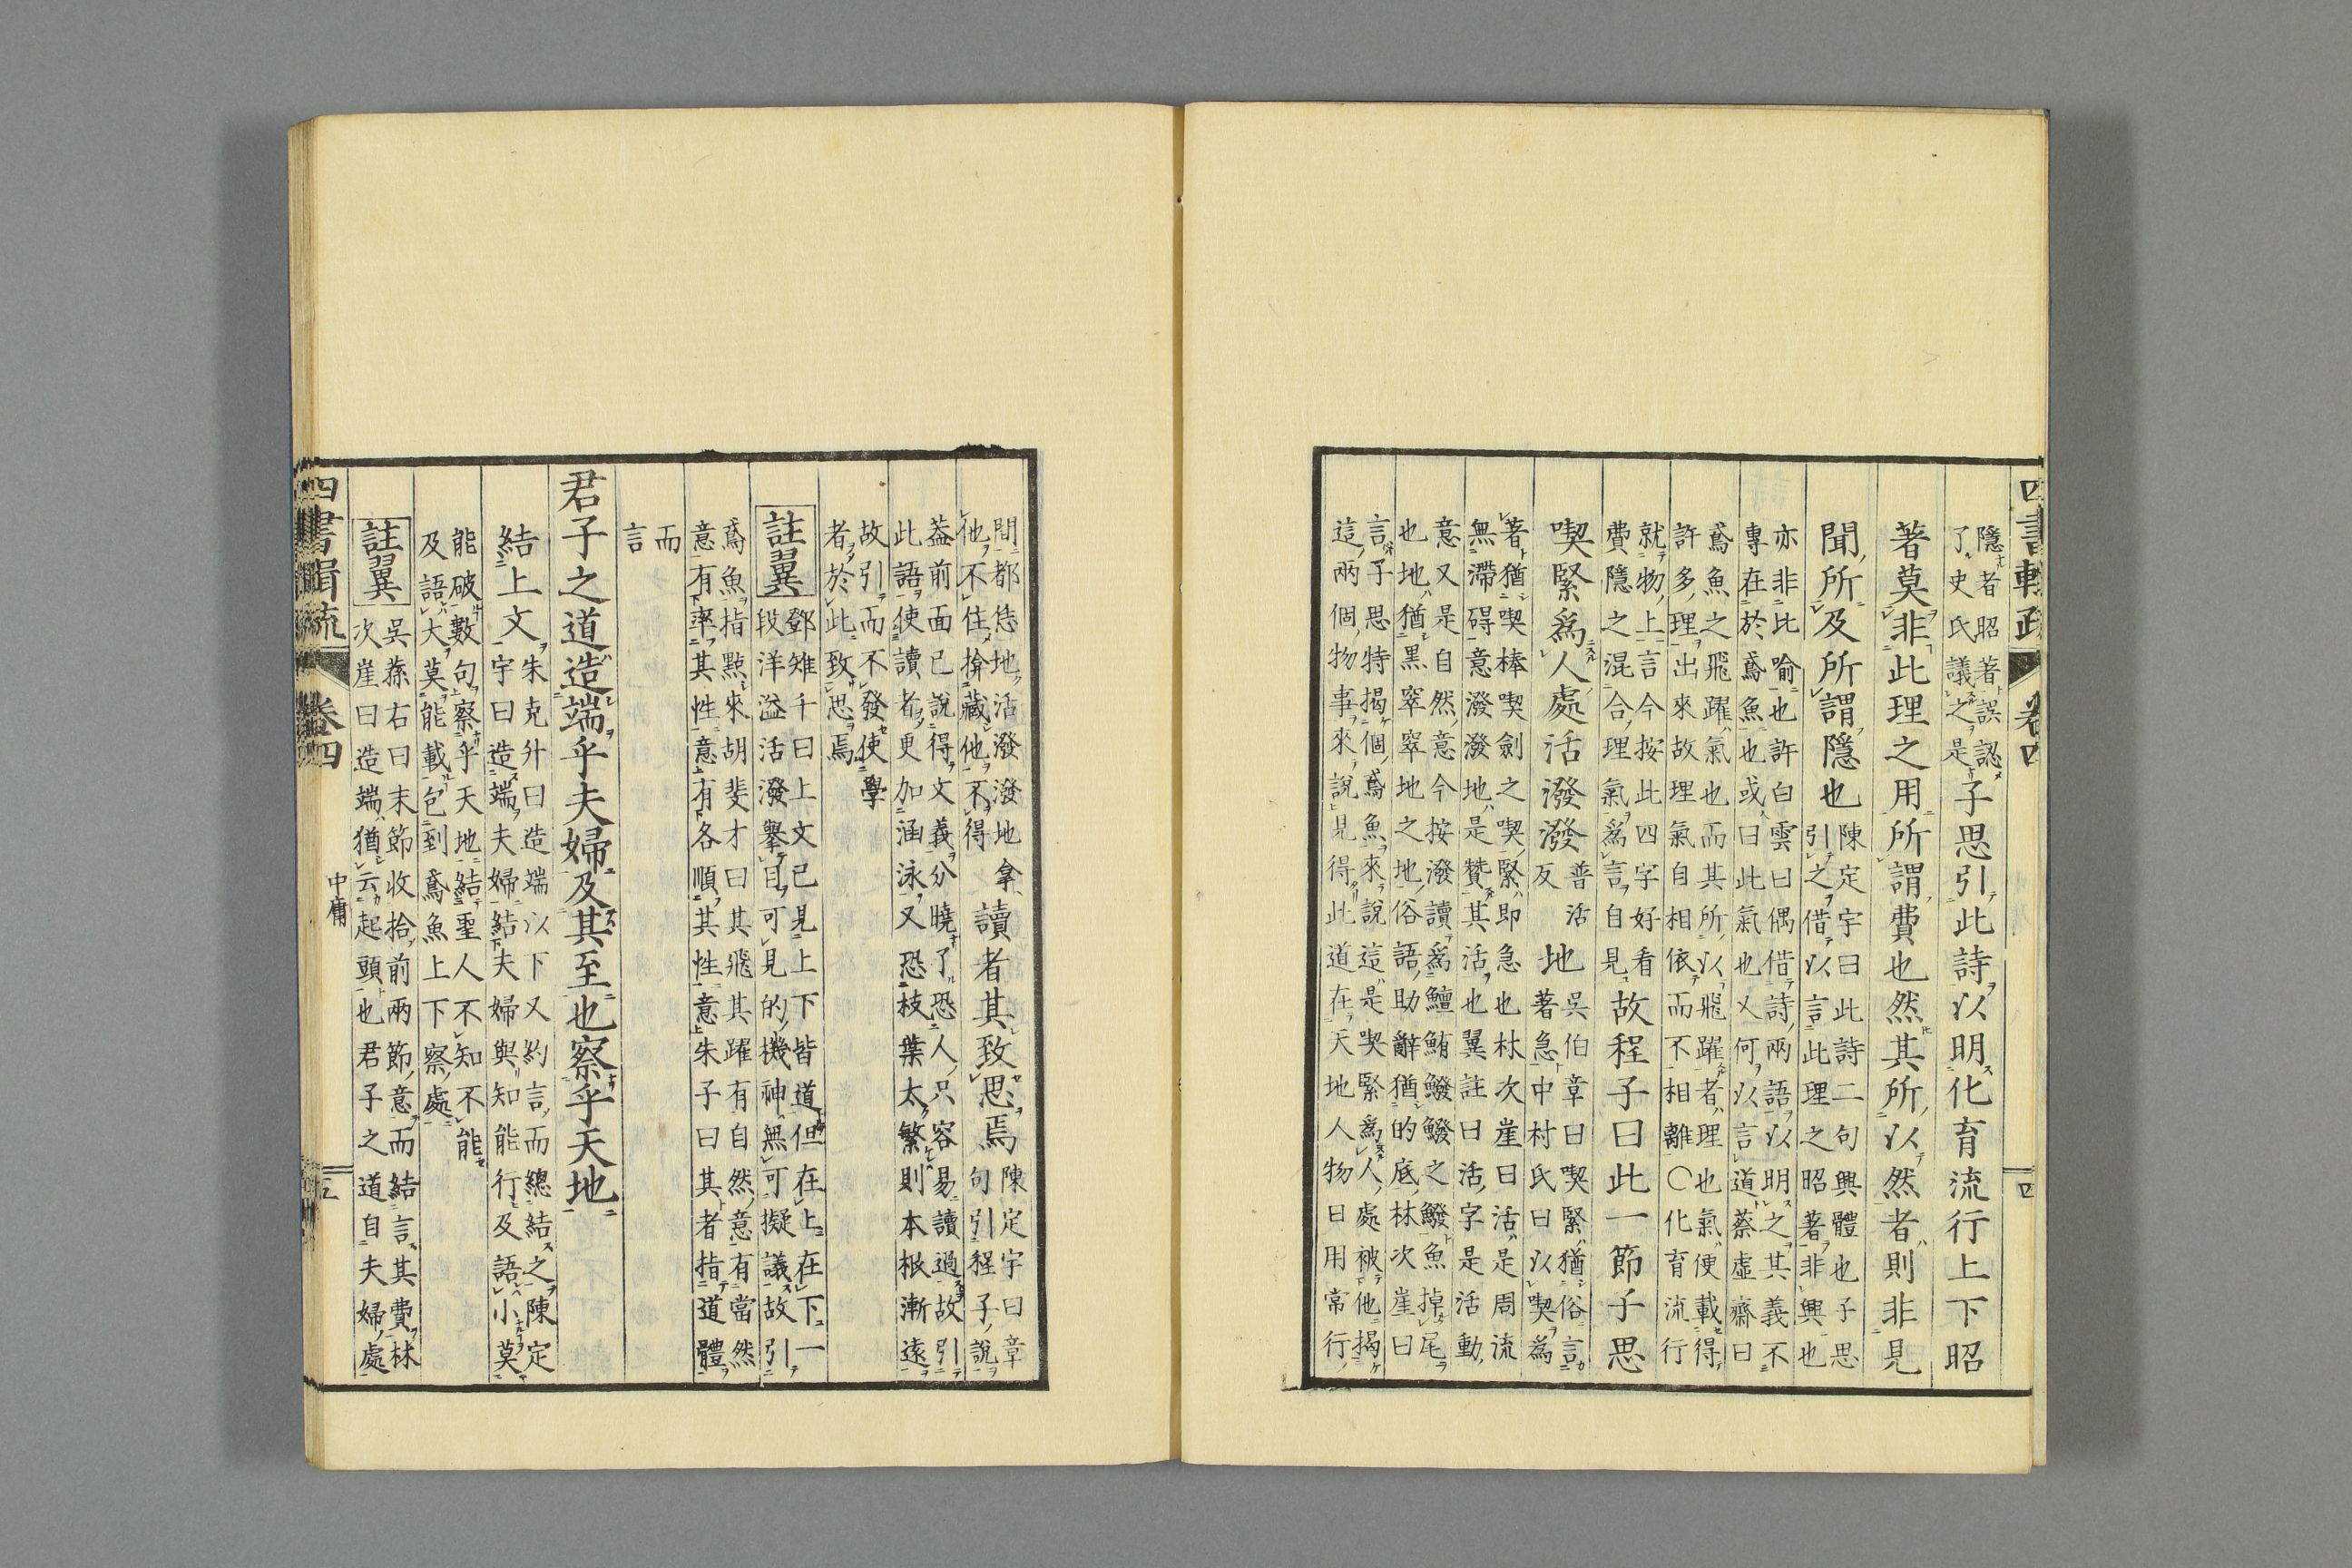 四書輯疏 卷四 四
隱者昭著誤認
了史氏議之是
子思引此詩以明化育流行上下昭
著莫非此理之用所謂費也然其所以然者則非見
聞所及所謂隱也
陳定宇曰此詩二句興體也子思
引之借以言此理之昭著非興也
亦非比喻也許白雲曰偶借詩兩語以明之其義不
專在於鳶魚也或曰此氣也又何以言道蔡虛齋曰
鳶魚之飛躍氣也而其所以飛躍者理也氣便載得
許多理出來故理氣自相依而不相離〇化育流行
就物上言今按此四字好看
費隱之混合理氣為言自見
故程子曰此一節子思
喫緊為人處活潑潑
普活
反
地
吳伯章曰喫緊猶俗言
著急中村氏曰以喫為
著猶喫棒喫劍之喫緊即急也林次崖曰活是周流
無滯碍意潑潑地是贊其活也翼註曰活字是活動
意又是自然意今按潑讀為鱣鮪鱍鱍之鱍魚掉尾
也地猶黑窣窣地之地俗語助辭猶的底林次崖曰
言子思特揭個鳶魚來說這是喫緊為人處被他揭
這兩個物事來說見得此道在天地人物日用常行
間都恁地活潑潑地拿
他不住揜藏他不得
讀者其致思焉
陳定宇曰章
句引程子說
蓋前面已說得文義分曉了恐人只容易讀過故引
此語使讀者更加涵泳又恐枝葉太繁則本根漸遠
故引而不發使學
者於此致思焉
註翼
鄧雉千曰上文已見上下皆道但在上在下一
段洋溢活潑擧目可見的機神無可擬議故引
鳶魚指點來胡斐才曰其飛其躍有自然意有當然
意有率其性意有各順其性意朱子曰其者指道體
而
言
君子之道造端乎夫婦及其至也察乎天地
結上文
朱克升曰造端以下又約言而總結之陳定
宇曰造端夫婦結夫婦與知能行及語小莫
能破數句察乎天地結聖人不知不能
及語大莫能載包到鳶魚上下察處
註翼
吳蓀右曰末節收拾前兩節意而結言其費林
次崖曰造端猶云起頭也君子之道自夫婦處
四書輯疏 卷四 中庸